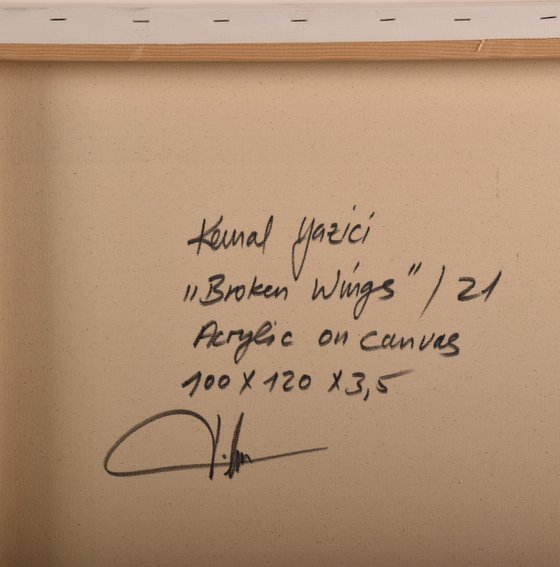 Kemal Yazici
„Broken Wings" / 21
Acrylic on canvas
100 x 120 x 3,5